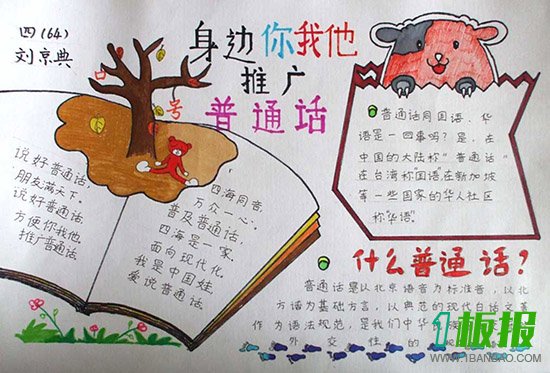 四(64)
刘京典
身边你我他
推广
普通话
口号
说好普通话,
朋友满天下。
说好普通话,
方便你我他.
推广普通话
四海同音,
万众一心。
普及普通话,
四海是一家.
面向现代化,
我是中国娃
爱说普通话.
普通话同国语、华
语是一回事吗?是,在
中国的大陆称“普通话”
在台湾称国语在新加坡
等一些国家的华人社区
称“华语”
什么普通话?
普通话是以北京语音为标准音,以北
方话为基础方言,以典范的现代白话文著
作为语法规范,是我们中华
外交性的
1板报
WWW.1BANBAO.COM